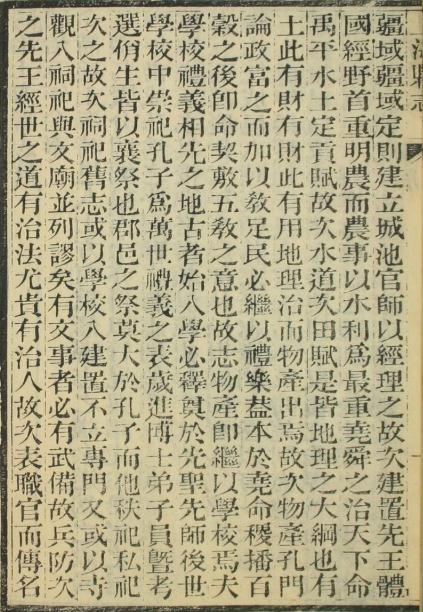 疆域疆域定則建立城池官師以經理之故次建置先王體
國經野首重明農而農事以水利爲最重堯舜之治天下命
禹平水土定貢賦故次水道次田賦是皆地理之大綱也有
土此有財有財此有用地理治而物產出焉故次物產孔門
論政富之而加以敎足民必繼以禮樂葢本於堯命稷播百
穀之後卽命契敷五敎之意也故志物產卽繼以學校焉夫
學校禮義相先之地古者始入學必釋奠於先聖先師後世
學校中崇祀孔子爲萬世禮義之表歲進博士弟子員曁考
選佾生皆以襄祭也郡邑之祭莫大於孔子而他秩祀私祀
次之故次祠祀舊志或以學校入建置不立專門又或以寺
觀入祠祀與文廟並列謬矣有文事者必有武備故兵防次
之先王經世之道有治法尤貴有治人故次表職官而傳名